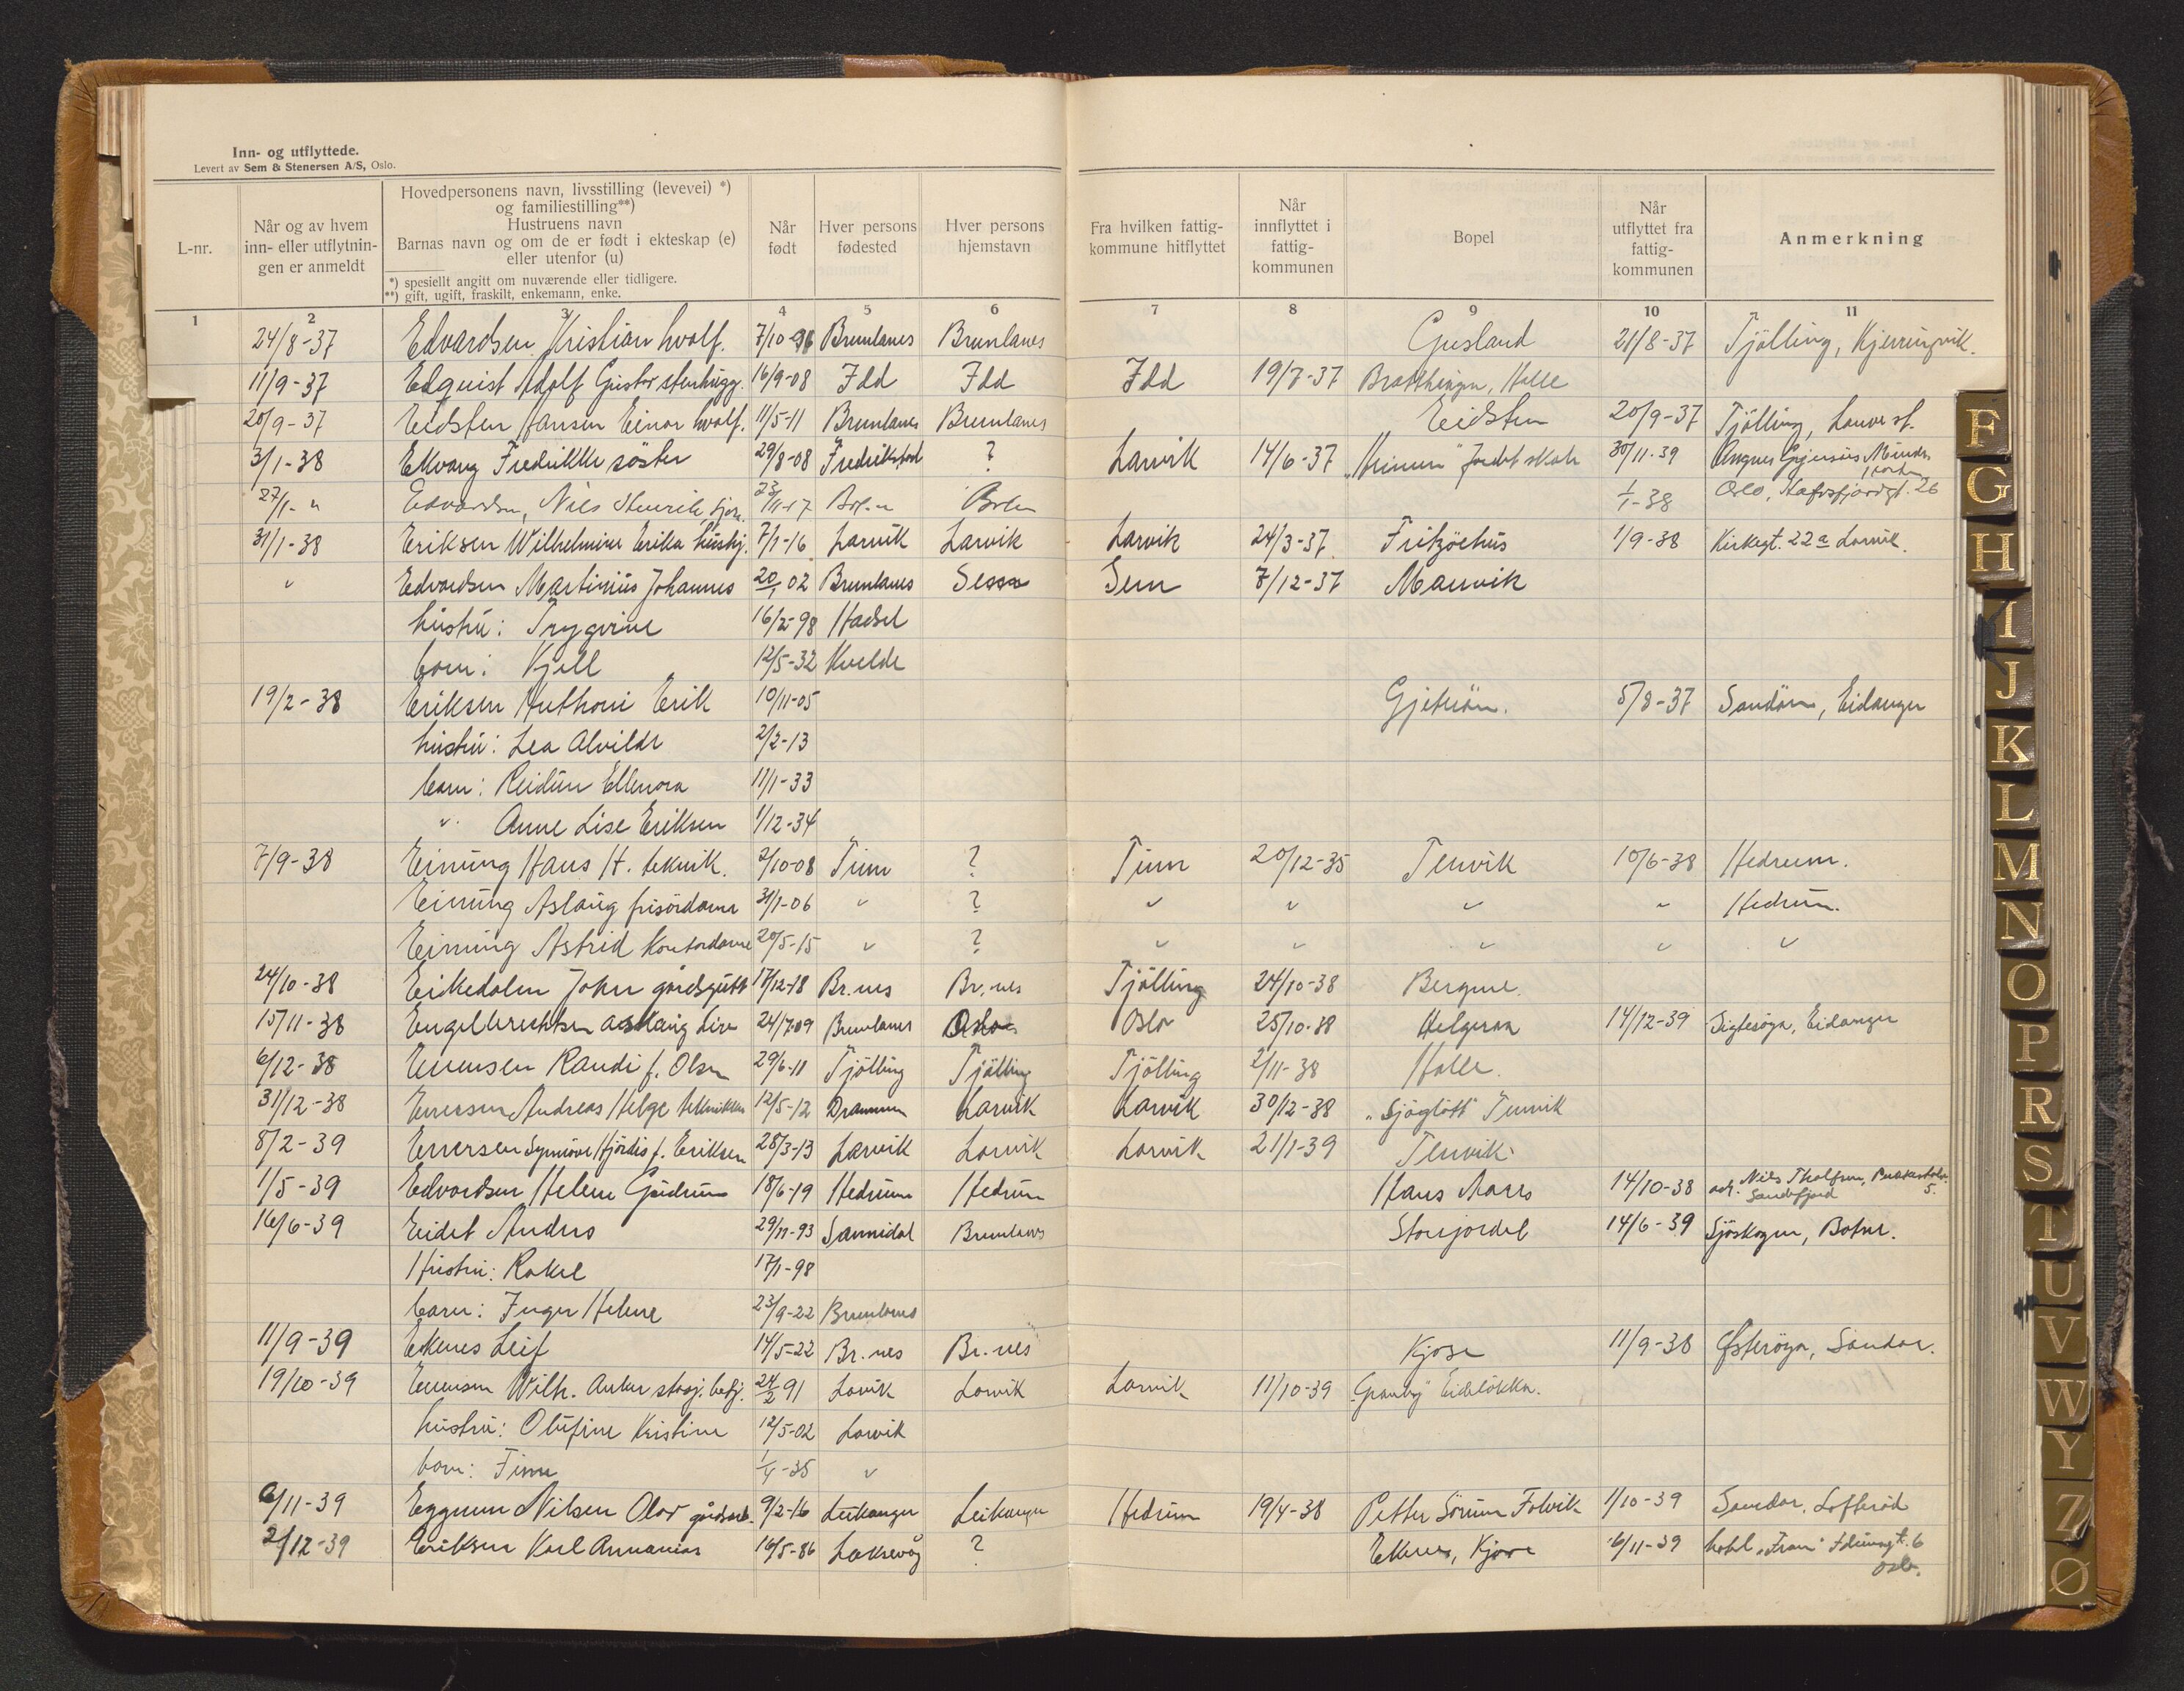 Inn- og utflyttede.
Levert av Sem & Stenersen A/S, Oslo.
L-nr.
Når og av hvem inn- eller utflytnin-gen er anmeldt
Hovedpersonens navn, livsstilling (levevei) *) og familiestilling**)
Hustruens navn
Barnas navn og om de er født i ekteskap (e) eller utenfor (u)
*) spesiellt angitt om nuværende eller tidligere.
**) gift, ugift, fraskilt, enkemann, enke.
Når født
Hver persons fødested
Hver persons hjemstavn
Fra hvilken fattig-kommune hitflyttet
Når innflyttet i fattig-kommunen
Bopel
Når utflyttet fra fattig-kommunen
Anmerkning
1 2 3 4 5 6 7 8 9 10 11
24/8-37 Edvardsen Kristian hvalf. 7/10-96 Brunlanes Brunlanes Gusland 21/8-37 Tjølling, Kjerringvik.
11/9-37 Edquist Adolf Gustav stenhugg. 16/9-08 Idd Idd Idd 19/7-37 Halle
20/9-37 Eidsten Hansen Einar hvalf. 11/5-11 Brunlanes Brunlanes Eidsten 20/9-37 Tjølling, Lauve st.
3/1-38 Ekvang Fredrikke søster 29/8-08 Fredrikstad ? Larvik 14/6-37 30/11-39
27/1- " Edvardsen, Nils Henrik sjøm. 1/1-38 Oslo, Hafrsfjordgt. 26
31/1-38 Eriksen Wilhelmine Erika hushj. 7/1-16 Larvik Larvik Larvik 24/3-37 Fritzöehus 1/9-38 Kirkegt. 22a Larvik.
" Edvardsen Martinius Johannes 20/1 02 Brunlanes Sem Sem 7/12-37 Manvik
hustru: Trygvine 16/2-98 Hadsel
barn: Kjell 12/5-32 Kvelde
19/2-38 Eriksen Anthoni Erik 10/11-05 Gjetrön. 5/8-37 Sandøen, Eidanger
hustru: Lea Alvilde 2/2-13
barn: Reidun Ellenora 11/1-33
" Anne Lise Eriksen 1/12-34
7/9-38 Einung Hans H. teknik. 2/10-08 Tinn ? Tinn 20/12-35 Tenvik 10/6-38 Hedrum.
Einung Aslaug frisördame 31/1-06 " ? " " " " Hedrum.
Einung Astrid Kontordame 20/5-15 " ? " " " " "
24/10-38 Eikedalen John gårdsgutt 17/12-18 Br.nes Br.nes Tjølling 24/10-38 Bergene.
15/11-38 Engelbrechtsen Aslaug Live 24/7-09 Brunlanes Oslo Oslo 25/10-38 Helgeroa 14/12-39 Eidanger
6/12-38 Evensen Randi f. Olsen 29/6-11 Tjølling Tjølling Tjølling 2/11-38 Halle.
31/12-38 Eversen Andreas Helge tekniker 12/5-12 Drammen Larvik Larvik 30/12-38 "Sjöglött" Tenvik
8/2-39 Eversen Synnöve Hjördis f. Eriksen 28/3-13 Larvik Larvik Larvik 21/1-39 Tenvik
1/5-39 Edvardsen Helene Gudrun 18/6-19 Hedrum Hedrum Hans Aares 14/10-38 adr. Nils Tholfsen, 5. Sandefjord
16/6-39 Eidet Anders 29/11-93 Sannidal Brunlanes Storejordet 14/6-39 Sjöskogen, Botne.
Hustru: Rakel 17/1-98
barn: Inger Helene 23/9-22 Brunlanes
11/9-39 Ekenes Leif 14/5-22 Br.nes Br.nes Kjose 11/9-38 Østeröya, Sandar.
19/10-39 Evensen Wilh. Anker stasj. betj. 24/2 91 Larvik Larvik Larvik 11/10-39 "Granby" Eidelökka.
hustru: Olufine Kristine 12/5-02 Larvik
barn: Finn 1/4-35 "
6/11-39 Eggum Nilsen Olav gårdsarb. 9/2-16 Leikanger Leikanger Hedrum 19/4-38 Petter Sörum Folvik 1/10-39 Sandar. Lofteröd
2/12-39 Eriksen Karl Annanias 16/5-86 Laksevåg ? Ekenes, Kjose 16/11-39 hotel "Fram" 6 Oslo.
F
G
H
I
J
K
L
M
N
O
P
R
S
T
U
V
W
Y
Z
Ø